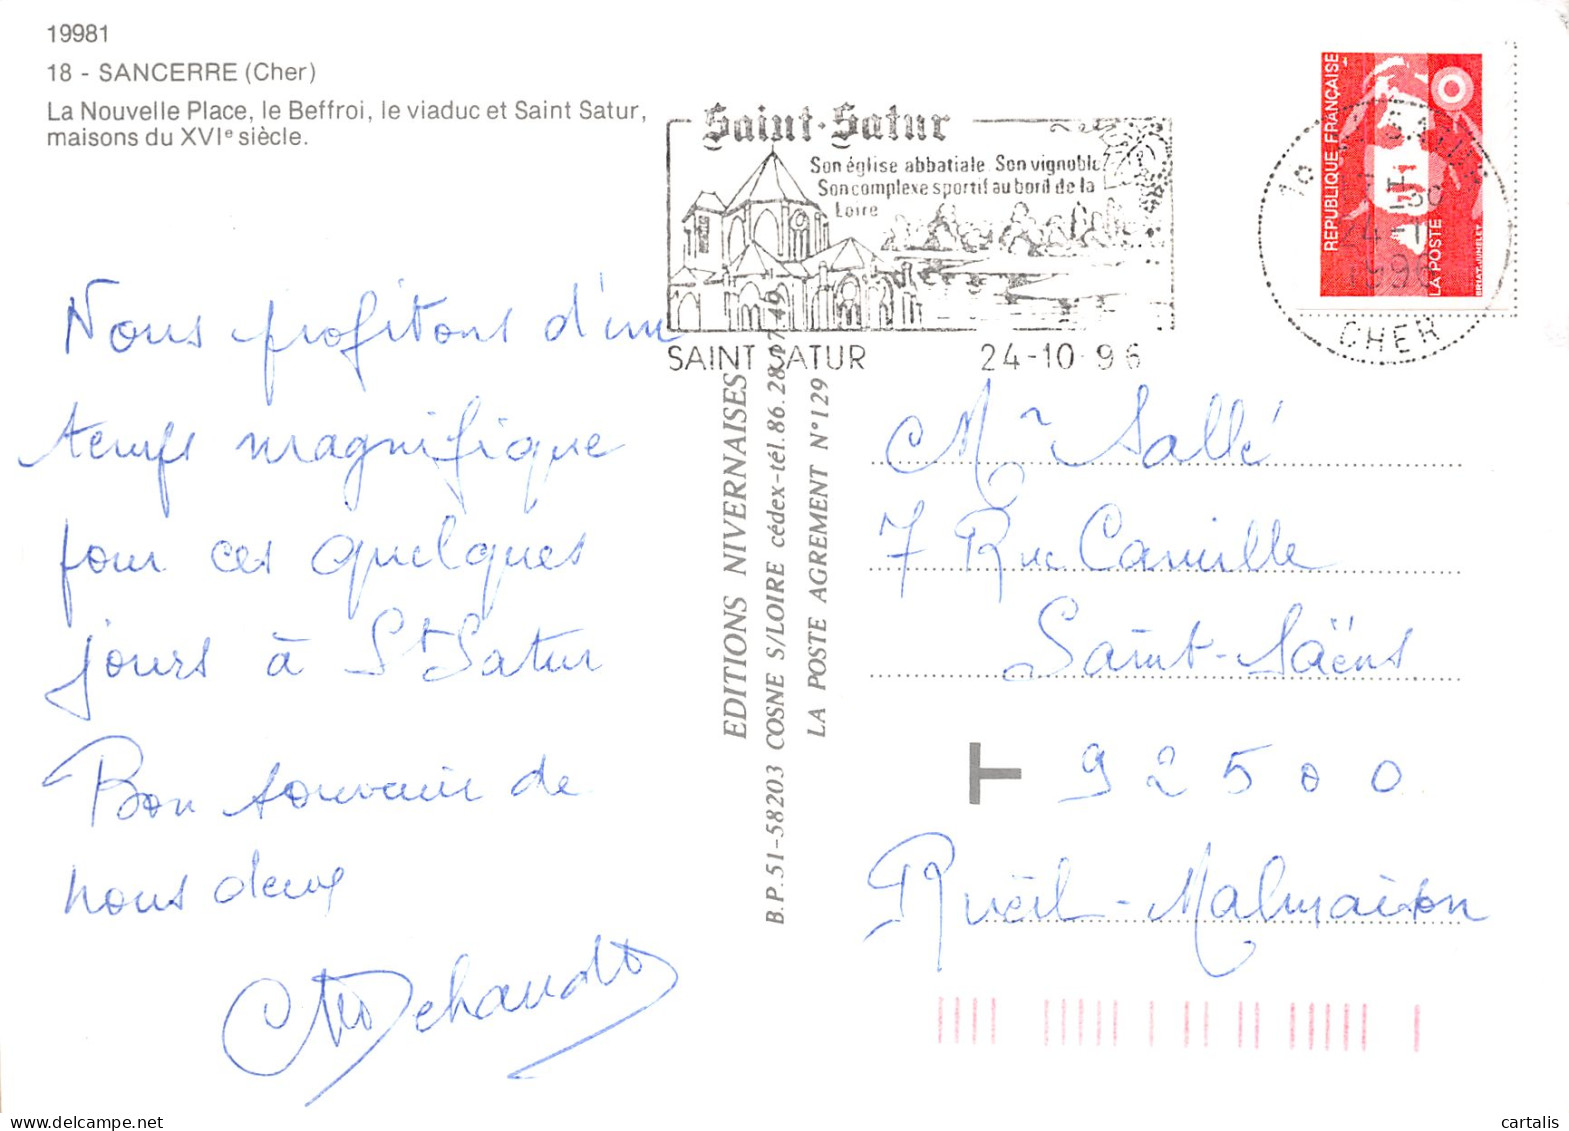 19981
18 - SANCERRE (Cher)
La Nouvelle Place, le Beffroi, le viaduc et Saint Satur,
maisons du XVIe siècle.
Saint-Satur
Son église abbatiale. Son vignoble
Son complexe sportif au bord de la
Loire
SAINT SATUR 24-10-96
REPUBLIQUE FRANÇAISE
LA POSTE
BRIAT-JUMELET
24-10
1996
CHER
Nous profitons d'un
temps magnifique
pour ces quelques
jours à St Satur
Bon souvenir de
nous deux
EDITIONS NIVERNAISES
B.P.51-58203 COSNE S/LOIRE cédex-tél.86.28.17.49
LA POSTE AGREMENT N°129
Mr Sallé
7 Rue Camille
Saint-Saëns
T 92500
Rueil-Malmaison
delcampe.net
cartalis